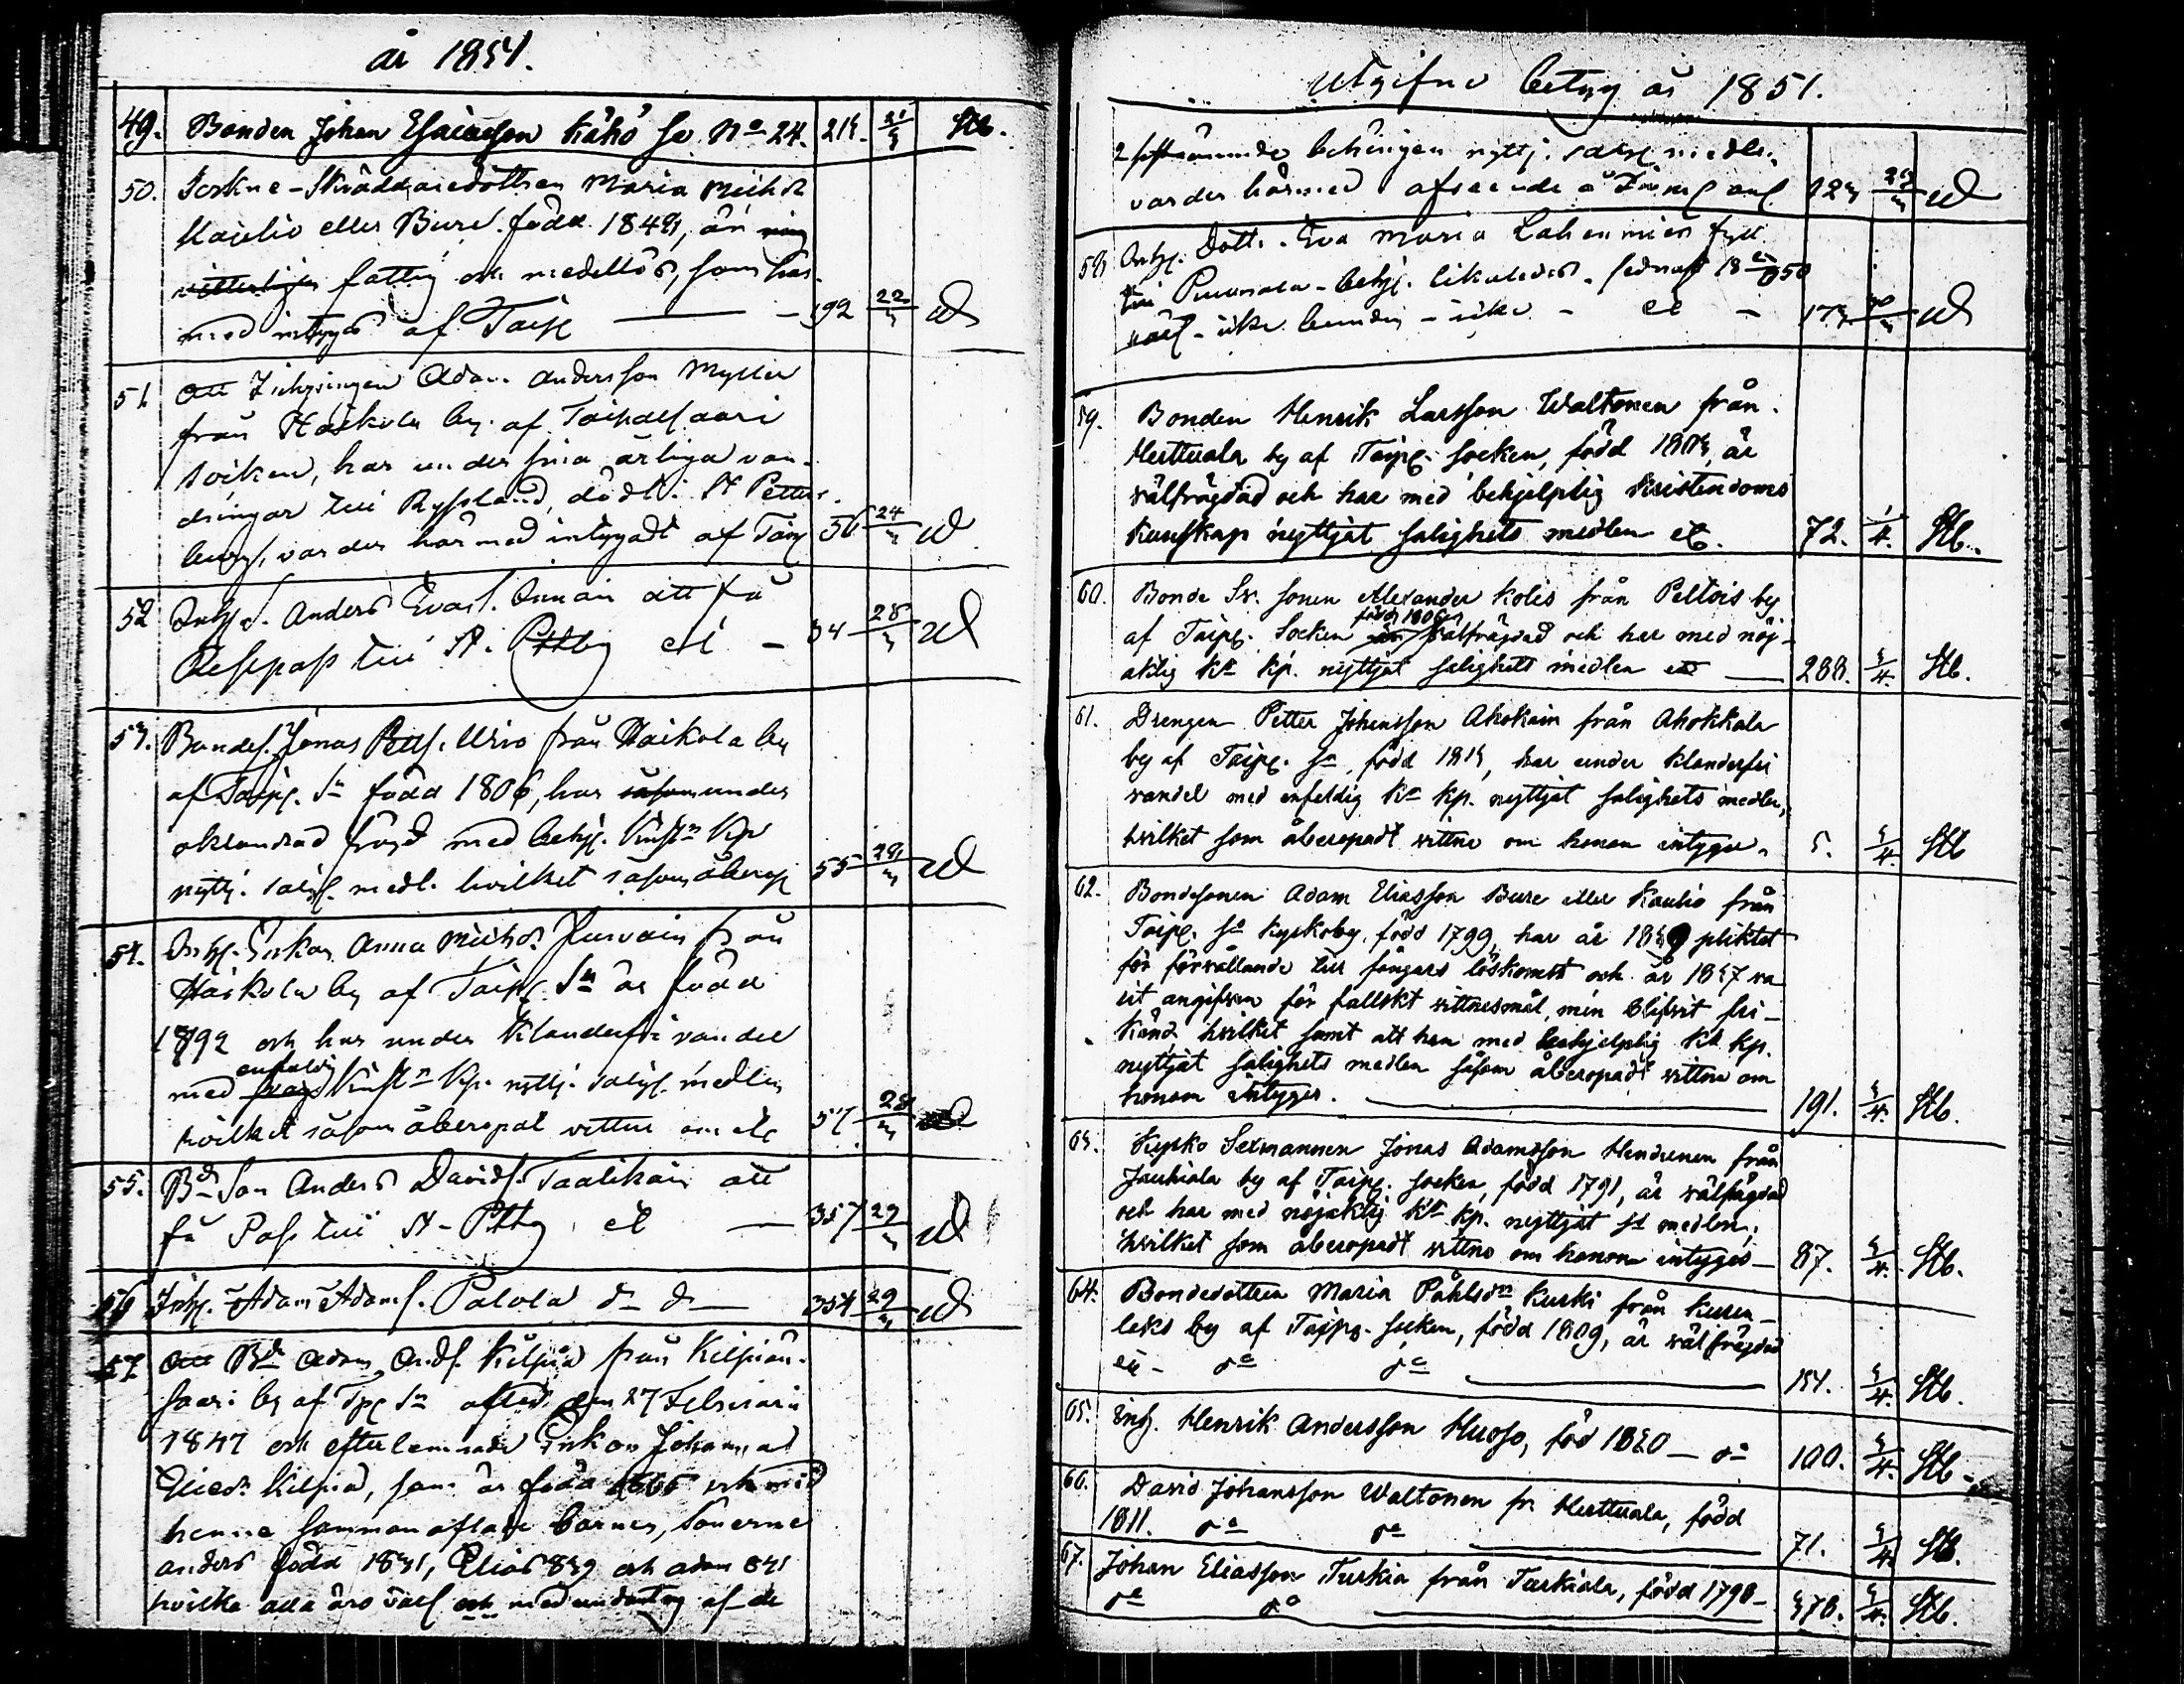 år 1851.
49. Bonden Johan Esaiasson Kähö se No 24. 213. 21/3 Stb.
50. Skräddaredottren Maria Michsdr
Kaulio eller Bure. född 1849, är
fattig och medellös, som här-
med intygas af Taip 192 22/3
51. Att Inhysingen Adam Andersson Myller
från Haikola by af Taipalsaari
socken, har under sina årliga van-
dringar till Ryssland, dödt i St Petters-
burg, varder härmed intygadt af Taip 56 24/3
52 Inhys. Anders Evas. Onnain att få
Resepass till St. Pttbg etc 34 28/3
53. Bondes. Jonas Petts. Urvo från Haikola by
af Taip. Sn född 1806, har under
oklandrad frägd med behj. Kp
nyttj. salig. medl. hvilket såsom åberop 55 28/3
54. Inhys. Enkan Anna Michsdr Purvain från
Haikola by af Taip. Sn är född
1792 och har under klanderfri vandel
enfaldig
med Kp. nyttj. salig. medlen
hvilket såsom åberopat vittne om etc 57 28/3
55. Bd Son Anders Davids. Taalikain att
få Pass till St. Pttbg etc 357 29/3
56 Inhys. Adam Adams. Palola do do 354 29/3
57 Att Bd Adam Ands. Kilpiä från Kilpiän-
saari by af Tpl Sn afled den 27 Februari
1847 och efterlemnade Enkan Johanna
Eliedr Kilpiä, som är född och med
henne sammanaflade barnen, Sönerne
Anders född 1831, Elias 839 och Adam 841
hvilka alla äro välf och med undantag af de
Utgifne betyg år 1851.
2 sistnämnde behörigen nyttj. salig. medlen
varder härmed afseende å 123 29/3
58 Inhys. Dottr. Eva Maria Lahenmies
till Pumala - behj. likaledes. sednast 850
välf - icke - etc - 173 30/3
59. Bonden Henrik Larsson Waltonen från
Herttuala by af Taipl. socken, född 1803, är
välfrägdad och har med behjelplig Kristendoms
Kunskap nyttjat salighets medlen etc. 72. 1/4. Stb.
60. Bonde Sv. sonen Alexander Kolis från Peltois by
född 1806
af Taipl. Socken är välfrägdad och har med nöj-
aktig Kn kp. nyttjat salighets medlen etc 288. 3/4. Stb.
61. Drengen Petter Johansson Ahokain från Ahokkala
by af Taipl. Sn, född 1813, har under klanderfri
vandel med enfaldig Kn kp. nyttjat salighets medlen,
hvilket som åberopadt vittne om honom intygas. 5. 3/4. Stb
62. Bondesonen Adam Eliasson Bure eller Kaulio från
Taipl. Sn Kyrkoby, född 1799, har år pliktat
för förvållande till fångars löskomst och år 1837 va-
rit angifven för falskt vittnesmål, men blifvit fri-
känd, hvilket samt att han med behjelplig Kn kp.
nyttjat salighets medlen såsom åberopadt vittne om
honom intygas. 191. 3/4. Stb.
63. Kyrko Sexmannen Jonas Adamsson Hendunen från
Jauhiala by af Taipl. socken, född 1791, är välfrägdad
och har med nöjaktig Kn kp. nyttjat sl medlen,
hvilket som åberopadt vittne om honom intygas 87. 3/4. Stb.
64. Bondedottren Maria Påhlsdr Kurki från Kuren-
laks by af Taipl. socken, född 1809, är välfrägdad
do do 154. 3/4. Stb.
65. Inh. Henrik Andersson Huoso, föd 1820 do 100. 3/4. Stb
66. David Johansson Waltonen fr Herttuala, född
1811. do do 71. 3/4. Stb.
67. Johan Eliasson Turkia från Turkiala, född 1798
do do 378. 3/4. Stb.